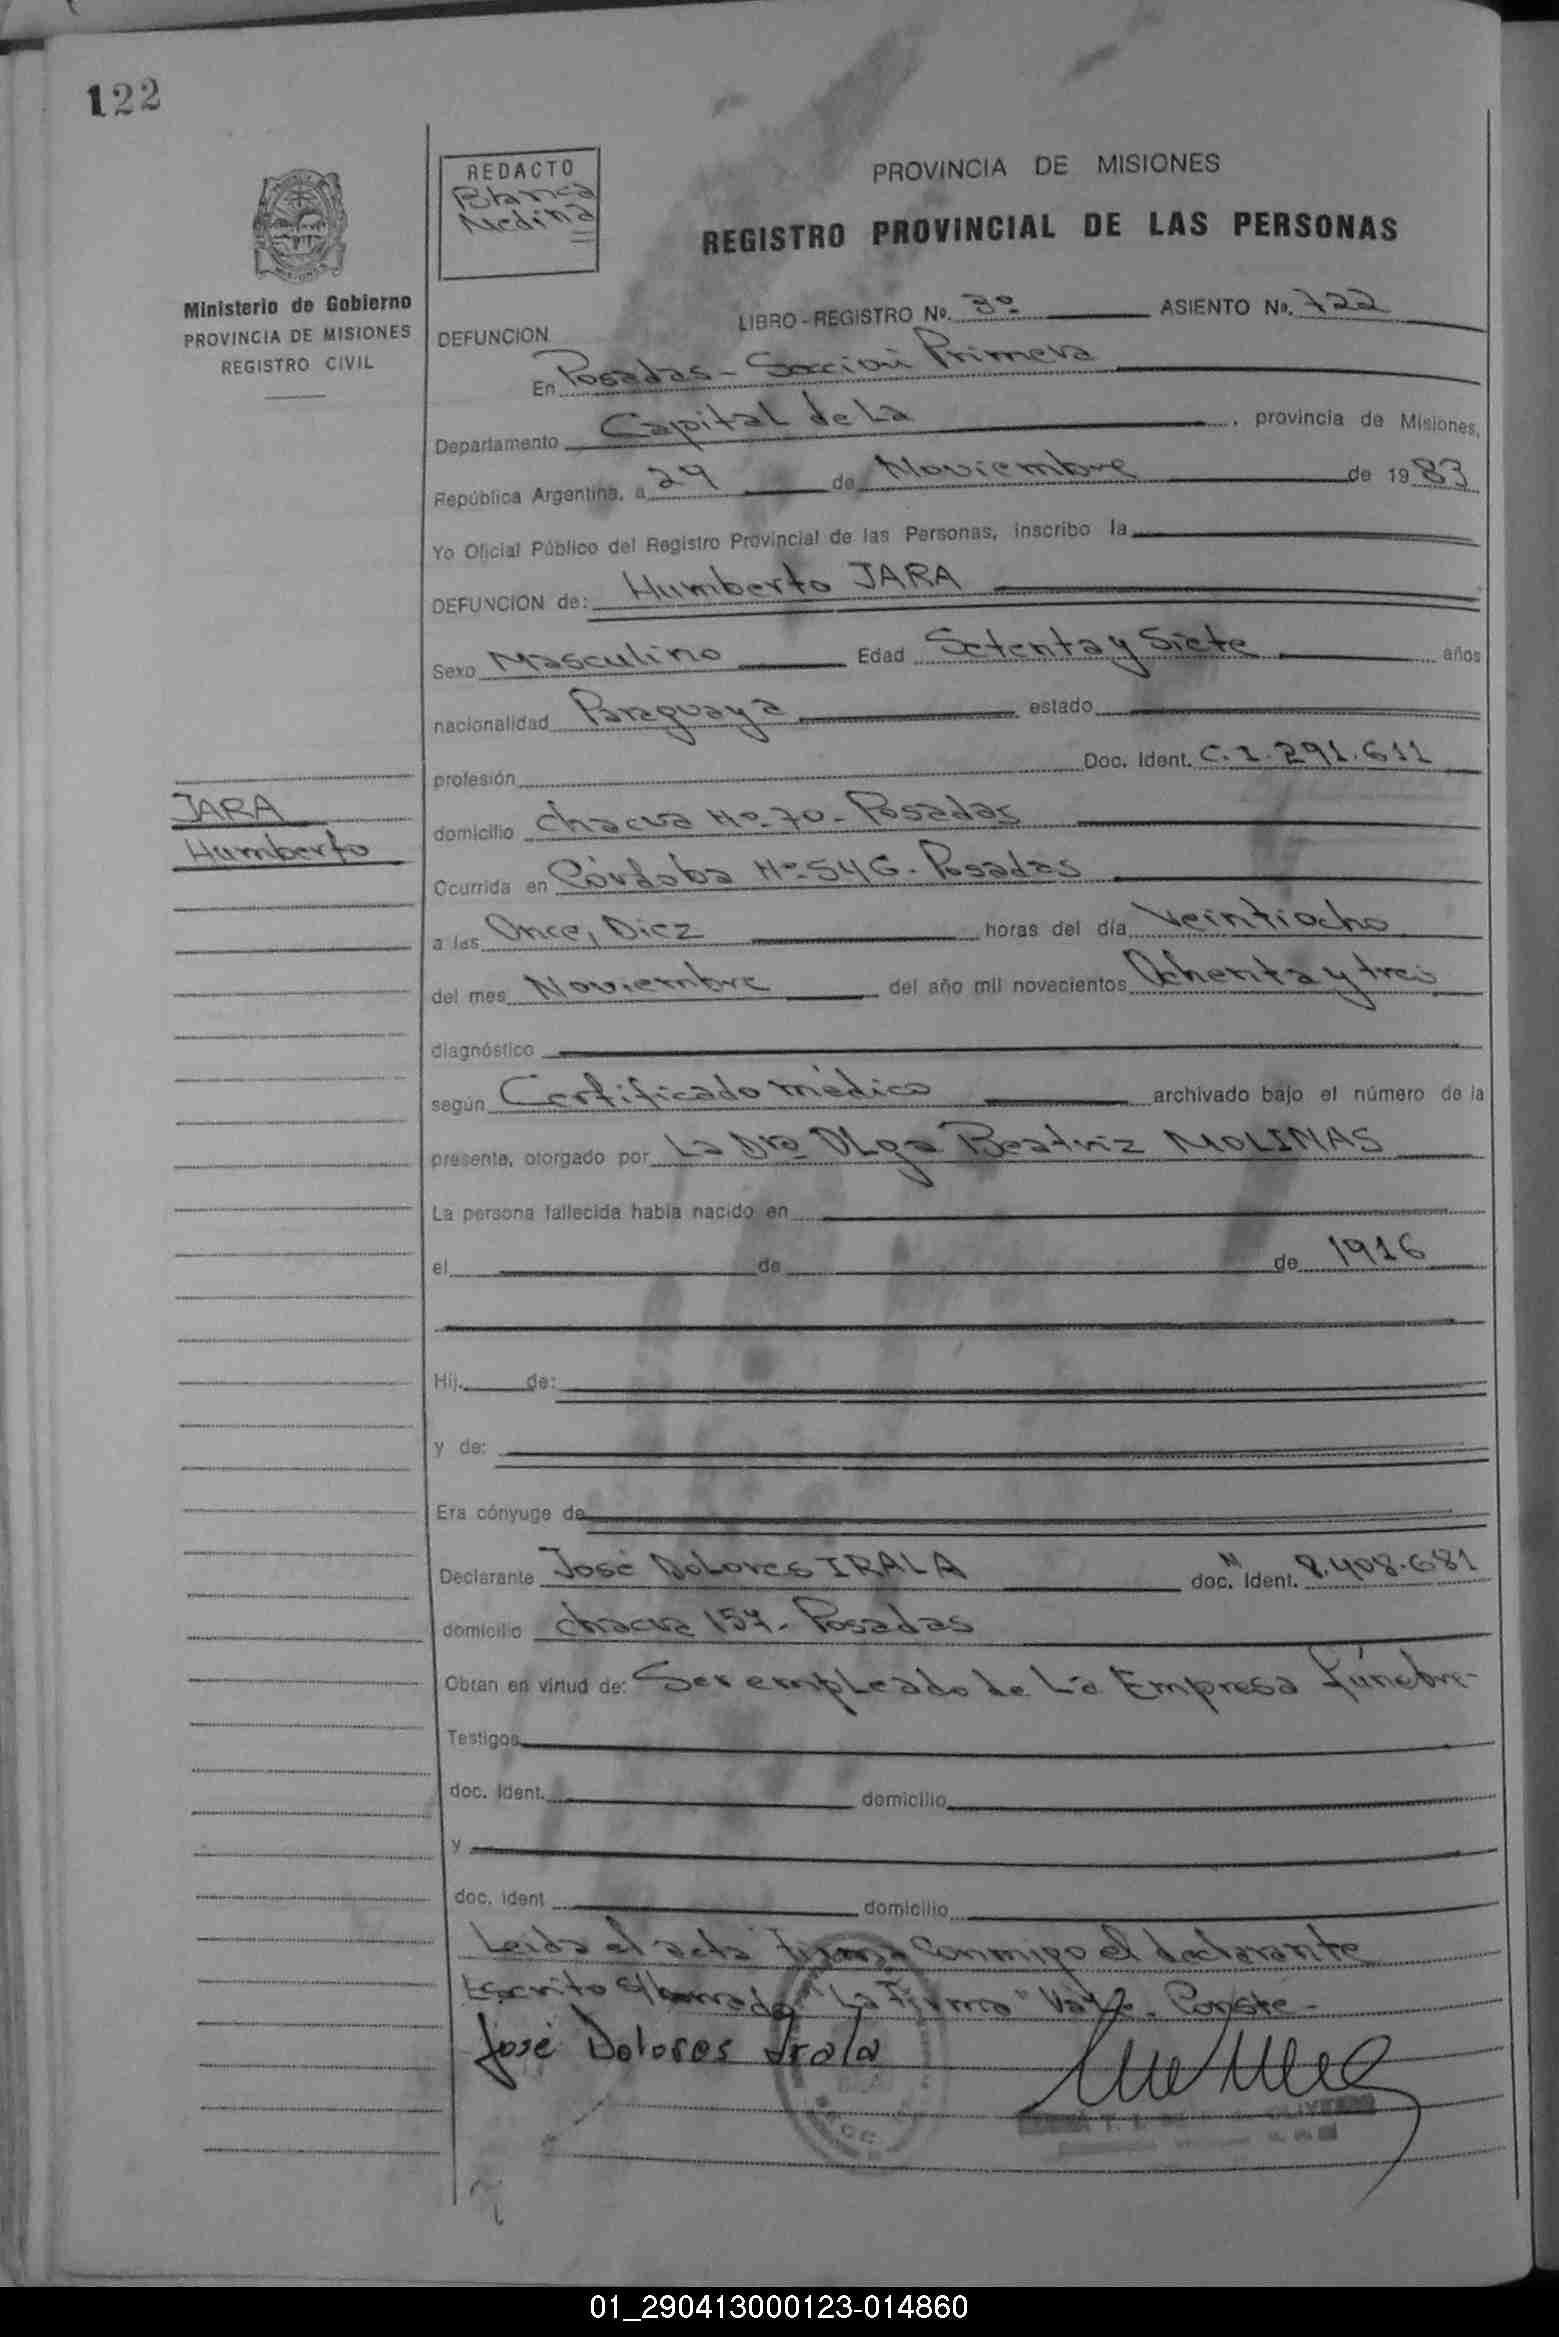 122
REDACTO
Blanca
Medina
PROVINCIA DE MISIONES
REGISTRO PROVINCIAL DE LAS PERSONAS
Ministerio de Gobierno
PROVINCIA DE MISIONES
REGISTRO CIVIL
LIBRO - REGISTRO Nº. 3º ASIENTO Nº. 722
DEFUNCION
En Posadas - Sección Primera
Departamento Capital de La , provincia de Misiones,
República Argentina, a 29 de Noviembre de 1983
Yo Oficial Público del Registro Provincial de las Personas, inscribo la
DEFUNCION de: Humberto JARA
Sexo Masculino Edad Setenta y Siete años
nacionalidad Paraguaya estado
profesión Doc. Ident. C.I. 291.611
JARA
Humberto
domicilio Chacra Nº 70 - Posadas
Ocurrida en Córdoba Nº 546 - Posadas
a las Once, Diez horas del día Veintiocho
del mes Noviembre del año mil novecientos Ochenta y tres
diagnóstico
según Certificado médico archivado bajo el número de la
presente, otorgado por La Dra Olga Beatriz MOLINAS
La persona fallecida había nacido en
el de de 1916
Hij. de:
y de:
Era cónyuge de
Declarante José Dolores IRALA doc. Ident. N 8.408.681
domicilio chacra 157 - Posadas
Obran en virtud de: Ser empleado de La Empresa fúnebre -
Testigos
doc. Ident. domicilio
y
doc. Ident domicilio
Leida el acta firma conmigo el declarante
Escrito s/borrado "La Firma" Vale. Conste -
José Dolores Irala
01_290413000123-014860